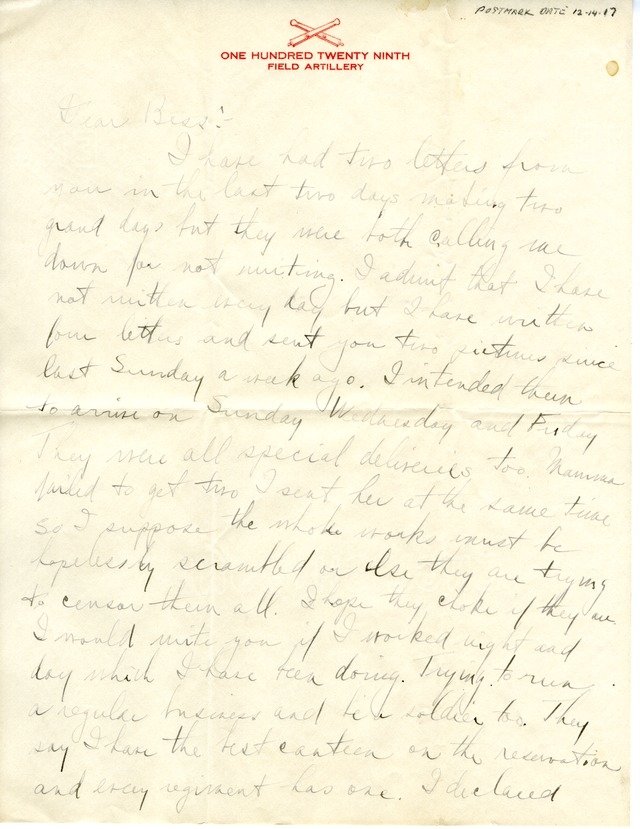 POSTMARK DATE 12-14-17
ONE HUNDRED TWENTY NINTH
FIELD ARTILLERY
Dear Bess:-
I have had two letters from
you in the last two days making two
grand days but they were both calling me
down for not writing. I admit that I have
not written every day but I have written
four letters and sent you two pictures since
last Sunday a week ago. I intended them
to arrive on Sunday Wednesday and Friday
They were all special deliveries too. Mamma
failed to get two I sent her at the same time
so I suppose the whole works must be
hopelessly scrambled or else they are trying
to censor them all. I hope they choke if they are
I would write you if I worked night and
day which I have been doing. Trying to run
a regular business and be a soldier too. They
say I have the best canteen on the reservation
and every regiment has one. I declared